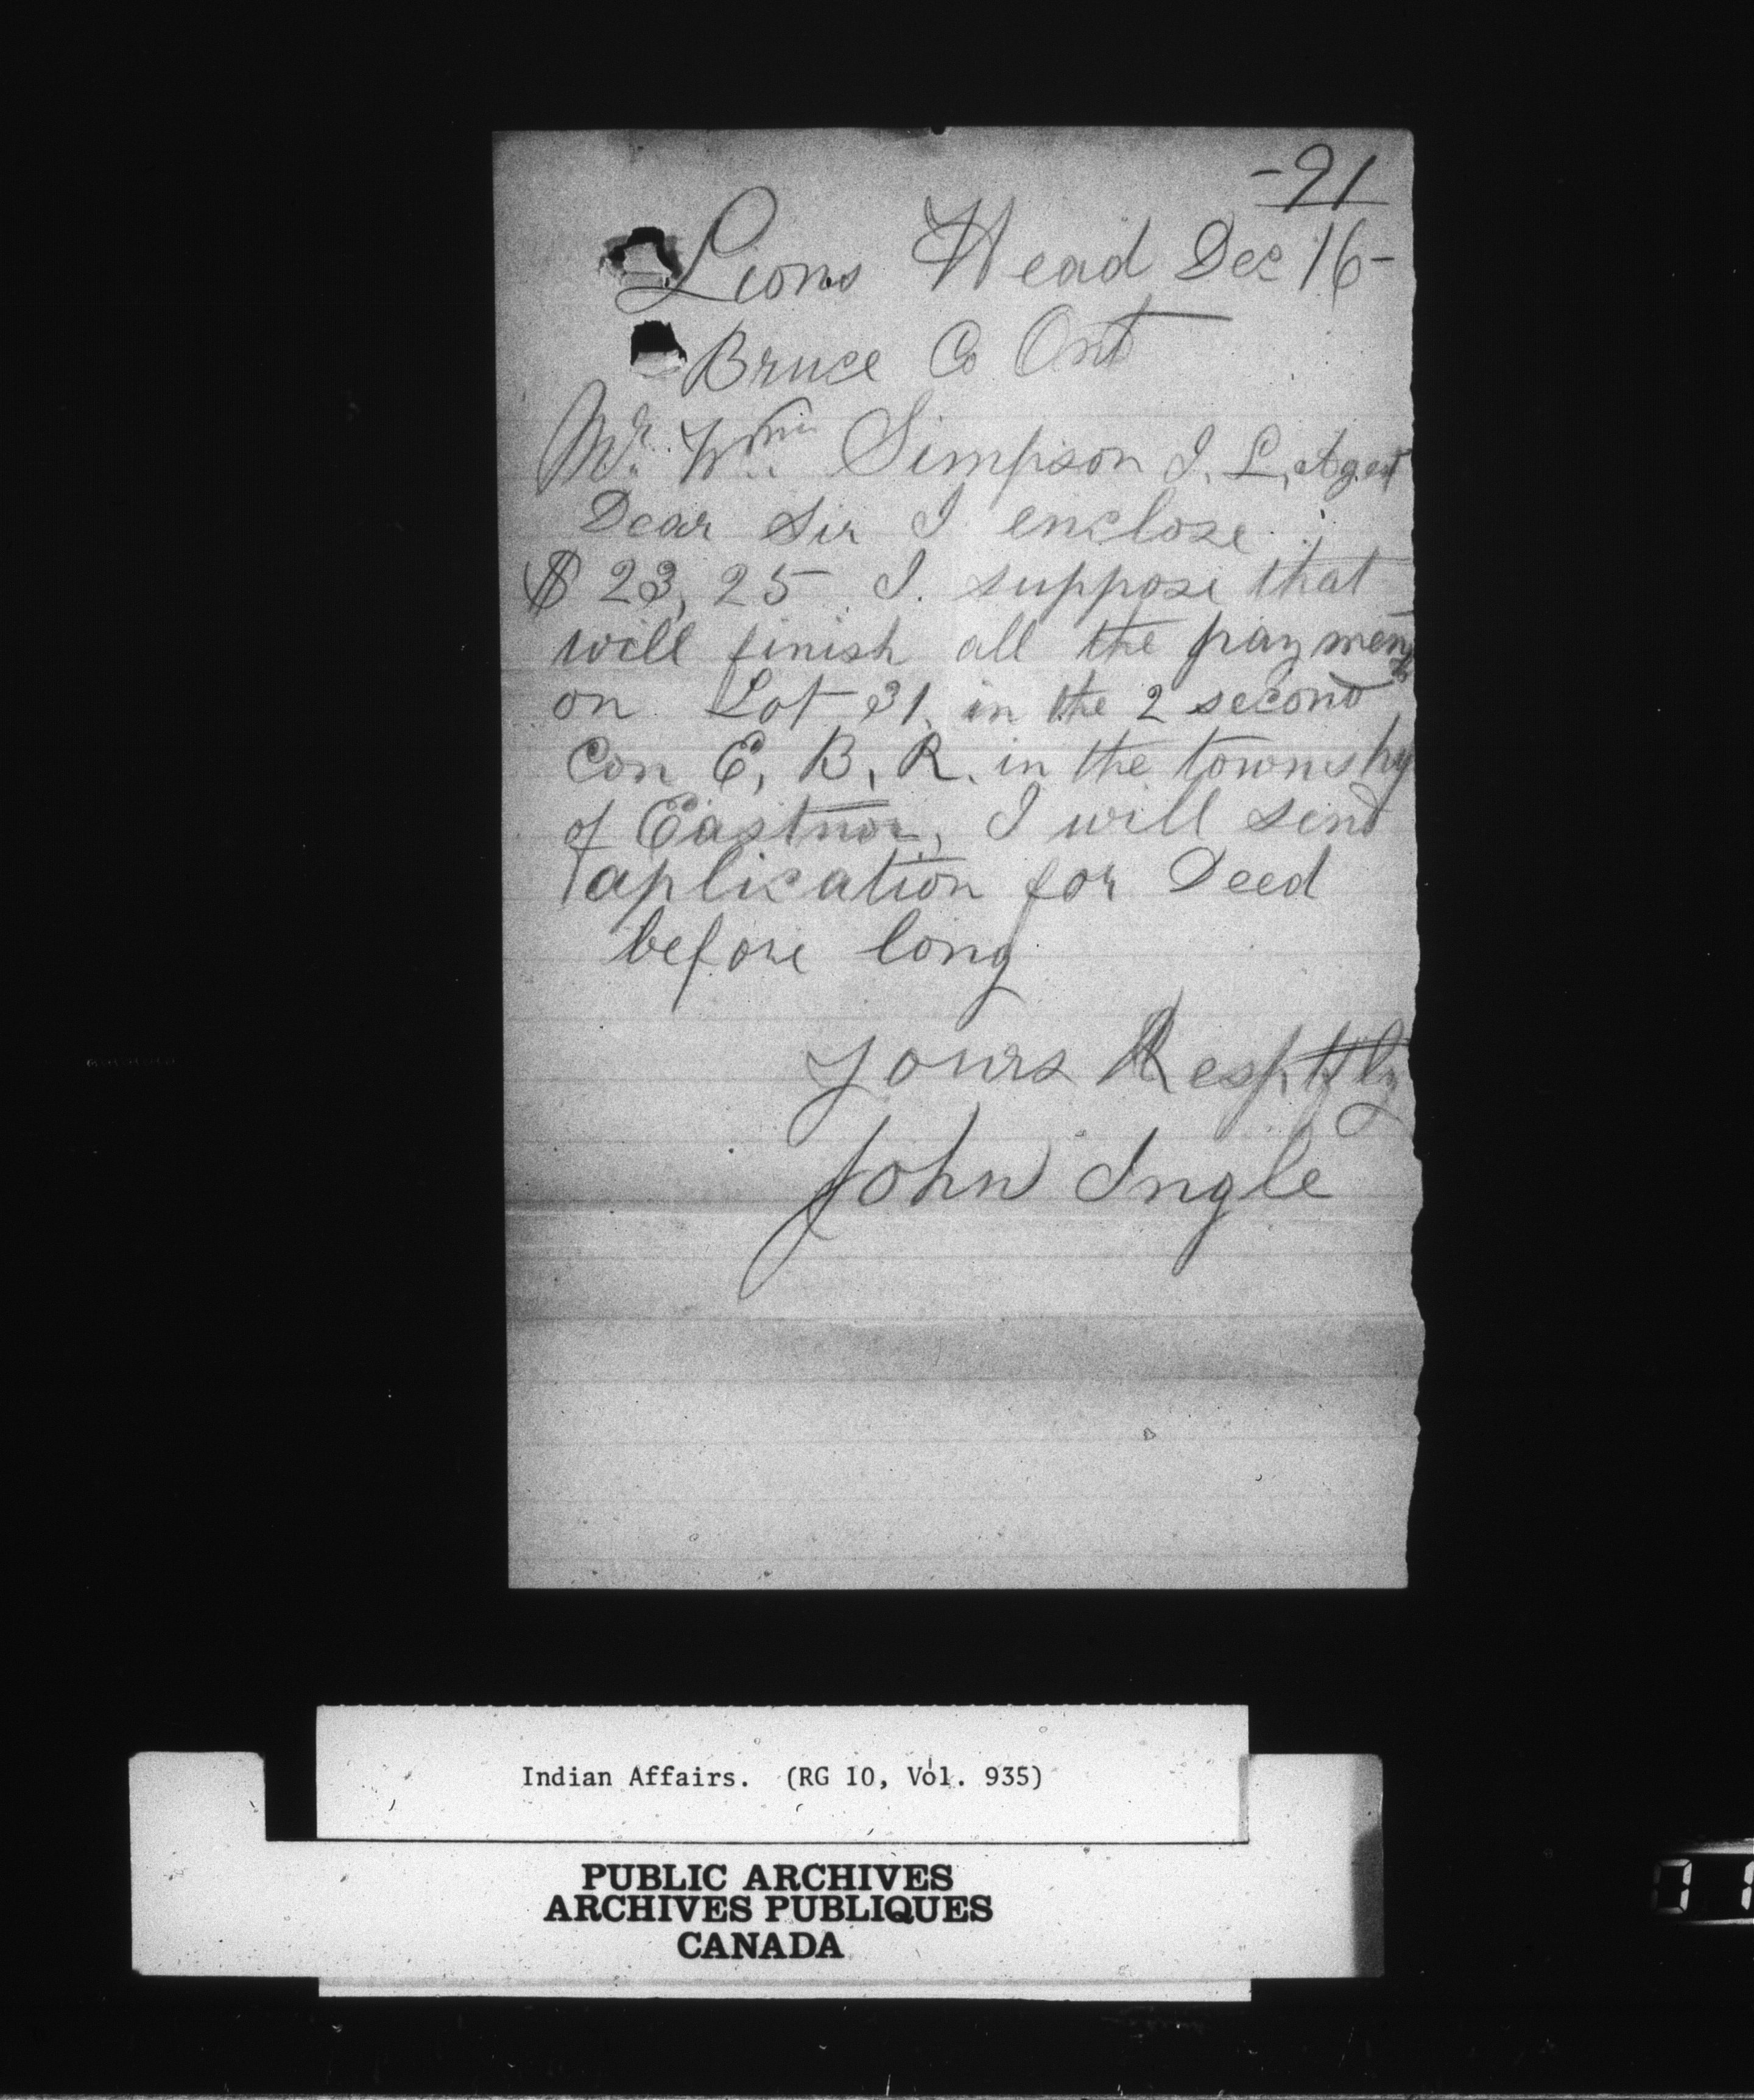 -91
Lions Head Dec 16-
Bruce Co Ont
Mr. Wm. Simpson I. L. Agent
Dear Sir I enclose
$ 23,25 I. suppose that
will finish all the payments
on Lot 31. in the 2 second
Con E, B, R. in the township
of Eastnor, I will send
aplication for Deed
before long
Yours Resptfly
John Ingle
Indian Affairs. (RG 10, Vol. 935)
PUBLIC ARCHIVES
ARCHIVES PUBLIQUES
CANADA